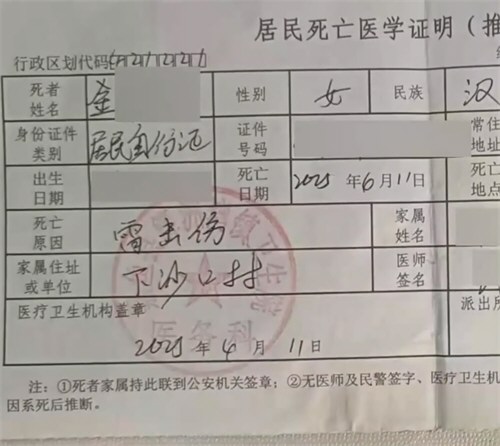 居民死亡医学证明（推
行政区划代码
死者姓名 性别 女 民族 汉
身份证件类别 居民身份证 证件号码 常住地址
出生日期 死亡日期 2025 年 6 月 11 日 死亡地点
死亡原因 雷击伤 家属姓名
家属住址或单位 下沙口村 医师签名
医疗卫生机构盖章 派出所
医务科
2025 年 6 月 11 日
注：①死者家属持此联到公安机关签章；②无医师及民警签字、医疗卫生机
因系死后推断。